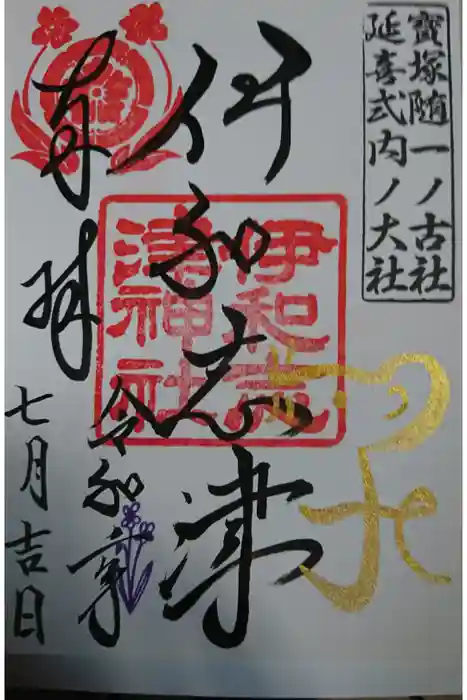 寳塚随一ノ古社
延喜式内ノ大社
伊和志津
伊和志
津神社
奉拝
令和
七月吉日